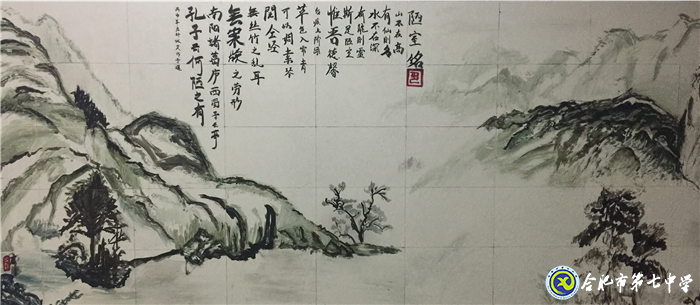 陋室铭
山不在高
有仙则名
水不在深
有龙则灵
斯是陋室
惟吾德馨
苔痕上阶绿
草色入帘青
可以调素琴
阅金经
無丝竹之乱耳
無案牍之劳形
南阳诸葛庐西蜀子云亭
孔子云何陋之有
合肥市第七中学